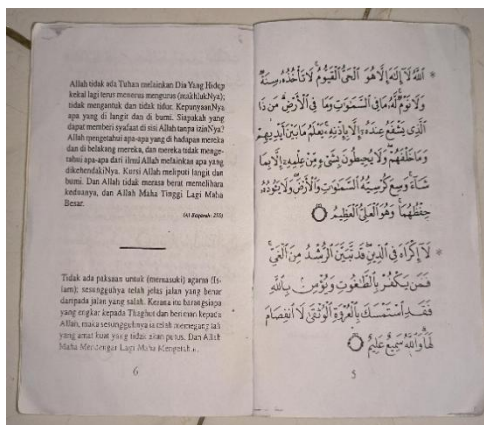 Allah tidak ada Tuhan melainkan Dia Yang Hidup
kekal lagi terus menerus mengurus (makhlukNya);
tidak mengantuk dan tidak tidur. KepunyaanNya
apa yang di langit dan di bumi. Siapakah yang
dapat memberi syafaat di sisi Allah tanpa izinNya?
Allah mengetahui apa-apa yang di hadapan mereka
dan di belakang mereka, dan mereka tidak menge-
tahui apa-apa dari ilmu Allah melainkan apa yang
dikehendakiNya. Kursi Allah meliputi langit dan
bumi. Dan Allah tidak merasa berat memelihara
keduanya, dan Allah Maha Tinggi Lagi Maha
Besar.
(Al Baqarah: 255)
Tidak ada paksaan untuk (memasuki) agama (Is-
lam); sesungguhnya telah jelas jalan yang benar
daripada jalan yang salah. Kerana itu barangsiapa
yang engkar kepada Thaghut dan beriman kepada
Allah, maka sesungguhnya ia telah memegang tali
yang amat kuat yang tidak akan putus. Dan Allah
Maha Mendengar Lagi Maha Mengetahui.
6
* اللَّهُ لَا إِلَٰهَ إِلَّا هُوَ الْحَيُّ الْقَيُّومُ لَا تَأْخُذُهُ سِنَةٌ
وَلَا نَوْمٌ لَّهُ مَا فِي السَّمَٰوَٰتِ وَمَا فِي الْأَرْضِ مَن ذَا
الَّذِي يَشْفَعُ عِندَهُ إِلَّا بِإِذْنِهِ يَعْلَمُ مَا بَيْنَ أَيْدِيهِمْ
وَمَا خَلْفَهُمْ وَلَا يُحِيطُونَ بِشَيْءٍ مِّنْ عِلْمِهِ إِلَّا بِمَا
شَاءَ وَسِعَ كُرْسِيُّهُ السَّمَٰوَٰتِ وَالْأَرْضَ وَلَا يَئُودُهُ
حِفْظُهُمَا وَهُوَ الْعَلِيُّ الْعَظِيمُ
* لَا إِكْرَاهَ فِي الدِّينِ قَد تَّبَيَّنَ الرُّشْدُ مِنَ الْغَيِّ
فَمَن يَكْفُرْ بِالطَّٰغُوتِ وَيُؤْمِن بِاللَّهِ
فَقَدِ اسْتَمْسَكَ بِالْعُرْوَةِ الْوُثْقَىٰ لَا انفِصَامَ
لَهَا وَاللَّهُ سَمِيعٌ عَلِيمٌ
5